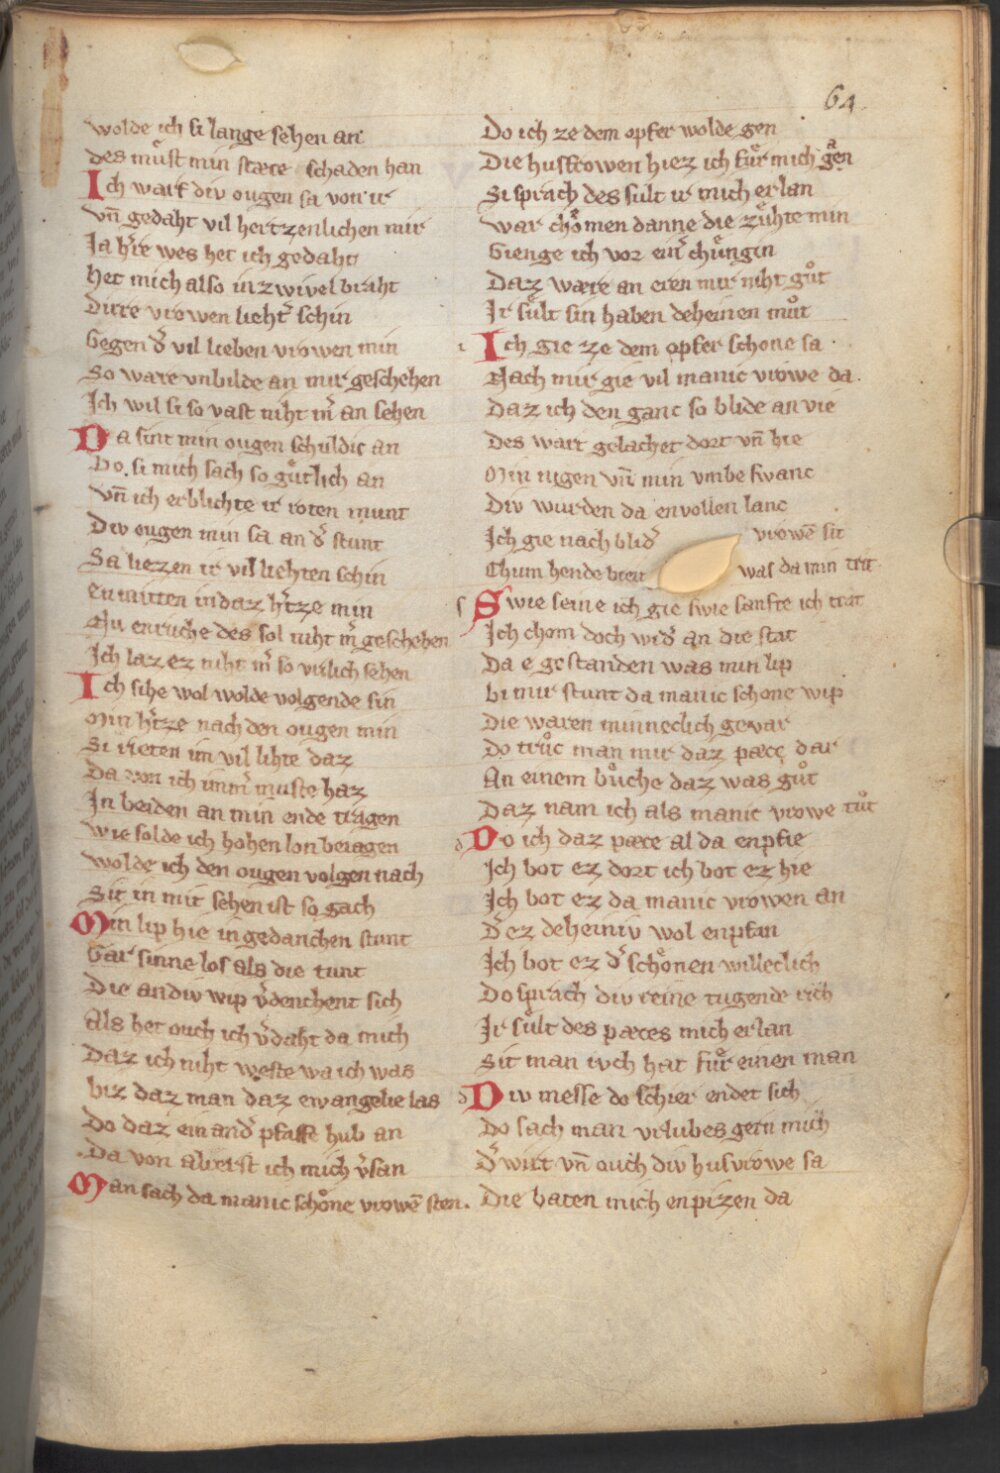 64
wolde ich si lange sehen an
des mvͦst min stæte schaden han
Ich warf div ougen sa von ir
vn̄ gedaht vil hertzenlichen mir
Ja h̄re wes het ich gedaht
het mich also in zwivel braht
Dirre vrowen lieht̄ schin
Gegen d̄ vil lieben vrowen min
So ware vnbilde an mir geschehen
Ich wil si so vast niht m̄ an sehen
Da sint min ougen schuldic an
Do si mich sach so guͤtlich an
vn̄ ich erblichte ir roten munt
Div ougen min sa an d̄ stunt
Sa liezen ir vil liehten schin
Enmitten in daz h̄tze min
Nu enruche des sol niht m̄ geschehen
Ich laz ez niht m̄ so vrilich sehen
Ich sihe wol wolde volgende sin
Min h̄tze nach den ougen min
Si rieten im vil lihte daz
Da von ich imm̄ muste haz
In beiden an min ende tragen
wie solde ich hohen lon beiagen
wolde ich den ougen volgen nach
Sit in mit sehen ist so gach
Min lip hie in gedanchen stunt
Gar sinne los als die tunt
Die andiv wip v̄denchent sich
Als het ouch ich v̄daht da mich
Daz ich niht weste wa ich was
biz daz man daz ewangelie las
Do daz ein and̄ pfaffe hub an
Da von alrerst ich mich v̄san
Man sach da manic schoͤne vrowē sten.
Do ich ze dem opfer wolde gen
Die husfrowen hiez ich fuͤr mich gen
Si sprach des sult ir mich erlan
war choͤmen danne die zuͤhte min
Gienge ich vor ein̄ chuͤngin
Daz wære an eren mir niht guͦt
Ir suͤlt sin haben deheinen muͦt
Ich gie ze dem opfer schone sa
Nach mir gie vil manic vrowe da
Daz ich den ganc so blide an vie
Des wart gelachet dort vn̄ hie
Min nigen vn̄ min vmbe swanc
Div wurden da envollen lanc
Ich gie nach blid̄ vrowē sit
Chum hende breit was da min trit
Swie seine ich gie swie sanfte ich trat
Ich chom doch wid̄ an die stat
Da e gestanden was min lip
bi mir stunt da manic schone wip
Die waren minneclich gevar
Do truͦc man mir daz pæce dar
An einem buͦche daz was guͦt
Daz nam ich als manic vrowe tuͦt
Do ich daz pæce al da enpfie
Ich bot ez dort ich bot ez hie
Ich bot ez da manic vrowen an
D̄ ez deheiniv wol enpfan
Ich bot ez d̄ schoͤnen willeclich
Do sprach div reine tugende rich
Ir suͤlt des pæces mich erlan
Sit man ivch hat fuͤr einen man
Div messe do schier endet sich
Do sach man vrlubes gern mich
D̄ wirt vn̄ ouch div husvrowe sa
Die baten mich enpizen da